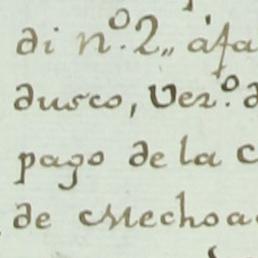 di n.º 2,, á fa
dusco, Vez.º d
pago de la c
de Mechoa